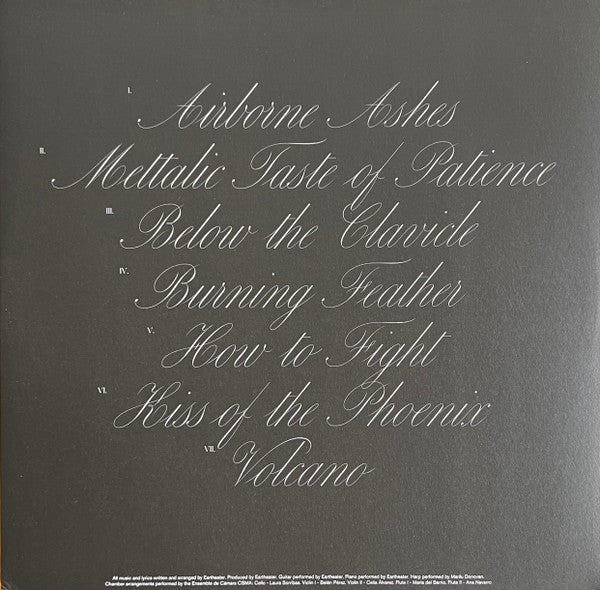 I. Airborne Ashes
II. Mettalic Taste of Patience
III. Below the Clavicle
IV. Burning Feather
V. How to Fight
VI. Kiss of the Phoenix
VII. Volcano
All music and lyrics written and arranged by Eartheater. Produced by Eartheater. Guitar performed by Eartheater. Piano performed by Eartheater. Harp performed by Marilu Donovan.
Chamber arrangements performed by the Ensemble de Cámara CSMA: Cello - Laura Sorribas, Violin I - Belén Pérez, Violin II - Celia Álvarez, Flute I - María del Barrio, Flute II - Ana Navarro